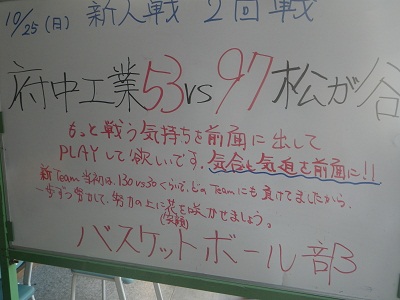 10/25(日) 新人戦 2回戦
府中工業 53 vs 97 松が谷
もっと戦う気持ちを前面に出して
PLAYして欲しいです。気合と気迫を前面に!!
新Team当初は、130vs30くらいで、どのTeamにも負けてましたから、
一歩ずつ努力して、努力の上に花を咲かせましょう。
(笑顔)
バスケットボール部